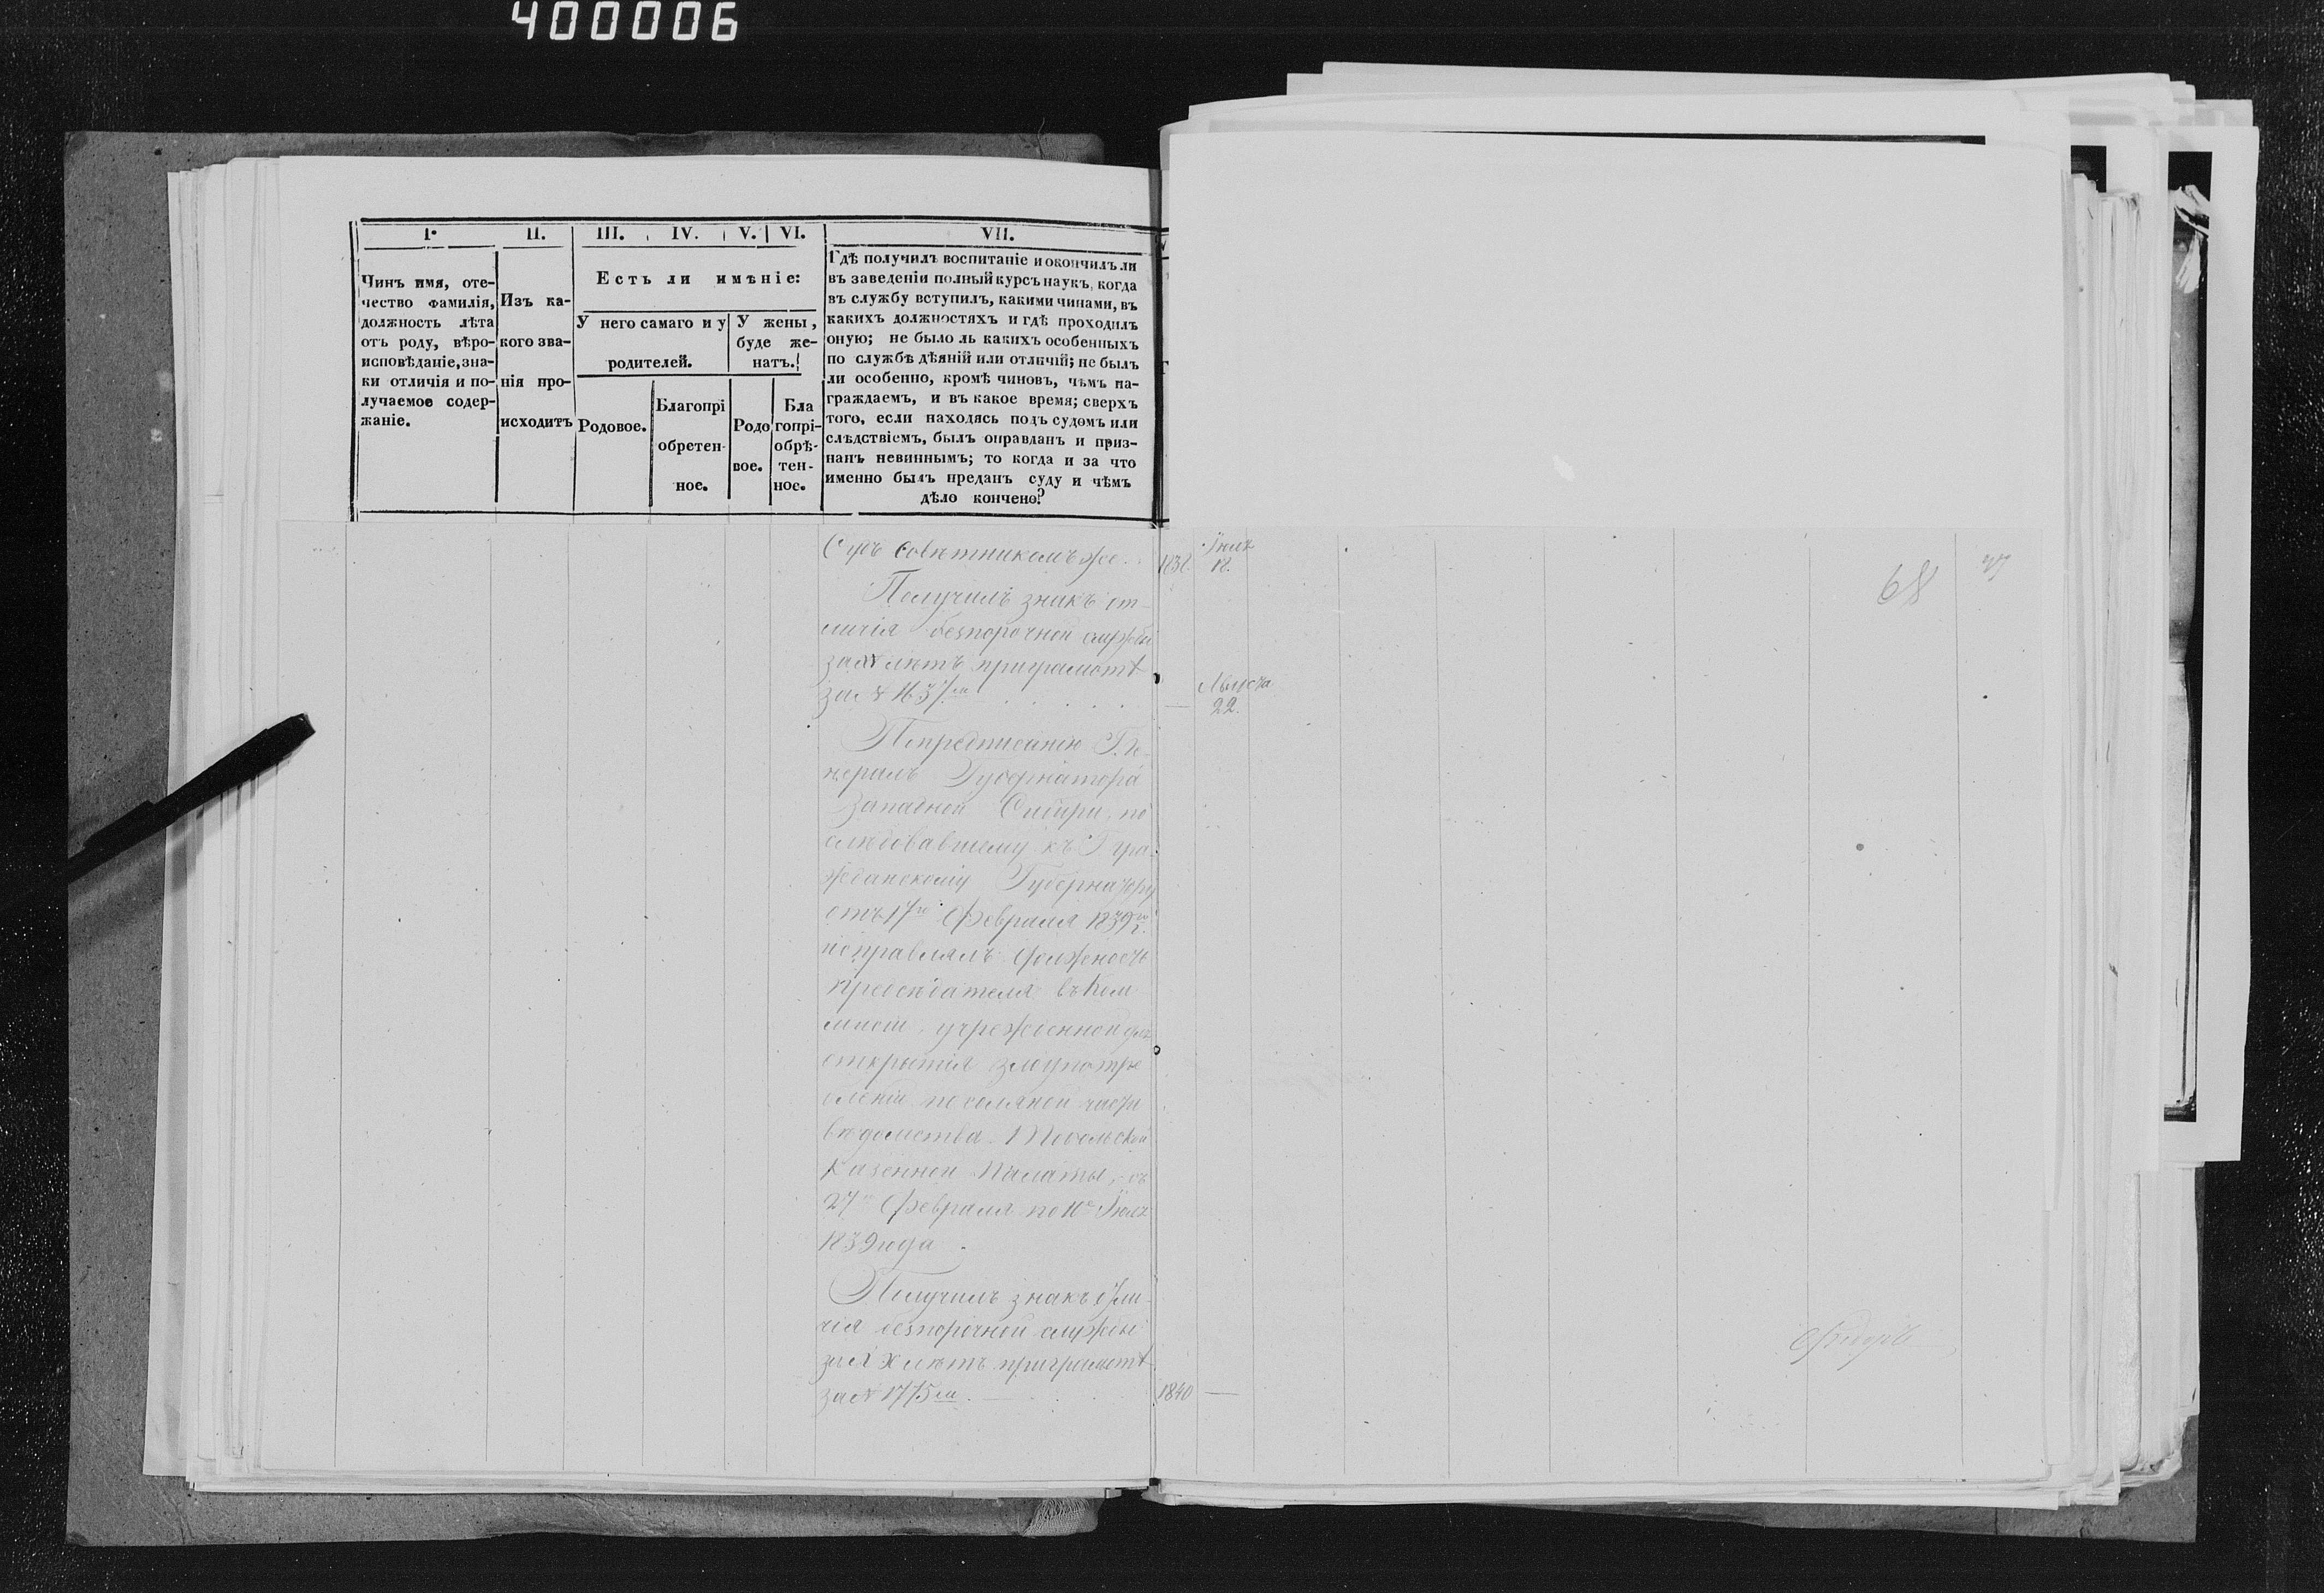 400006
I.
II.
III.
IV.
V.
VI.
VII.
Чинъ имя, оте-
чество фамилія,
должность лѣта
отъ роду, вѣро-
исповѣданіе, зна-
ки отличія и по-
лучаемое содер-
жаніе.
Изъ ка-
кого зва-
нія про-
исходитъ
Есть ли имѣніе:
У него самаго и у
родителей.
У жены,
буде же-
натъ.
Родовое.
Благопрі
обретен-
ное.
Родо
вое.
Бла
гопрі-
обрѣ-
тен-
ное.
Гдѣ получилъ воспитаніе и окончилъ ли
въ заведеніи полный курсъ наукъ, когда
въ службу вступилъ, какими чинами, въ
какихъ должностяхъ и гдѣ проходилъ
оную; не было ль какихъ особенныхъ
по службѣ дѣяній или отличій; не былъ
ли особенно, кромѣ чиновъ, чѣмъ на-
граждаемъ, и въ какое время; сверхъ
того, если находясь подъ судомъ или
слѣдствіемъ, былъ оправданъ и приз-
нанъ невиннымъ; то когда и за что
именно былъ преданъ суду и чѣмъ
дѣло кончено?
Совѣтникомъ же
Іюля
18.
Получилъ знакъ от-
личія безпорочной службы
за XV лѣтъ при грамотѣ
за №
Августа
22.
По предписанію Ге-
нералъ Губернатора
Западной Сибири, по
слѣдовавшему къ Гра-
жданскому Губернатору
отъ 17го Февраля 1839 г.
исправлялъ должность
предсѣдателя въ Ком
мисіи, учрежденной для
открытія злоупотре
бленій по соляной части
вѣдомства Тобольской
Казенной Палаты, съ
27 Февраля по Іюля
1839 года.
Получилъ знакъ отли-
чія безпорочной службы
за XX лѣтъ при грамотѣ
за № 1775
1840
68